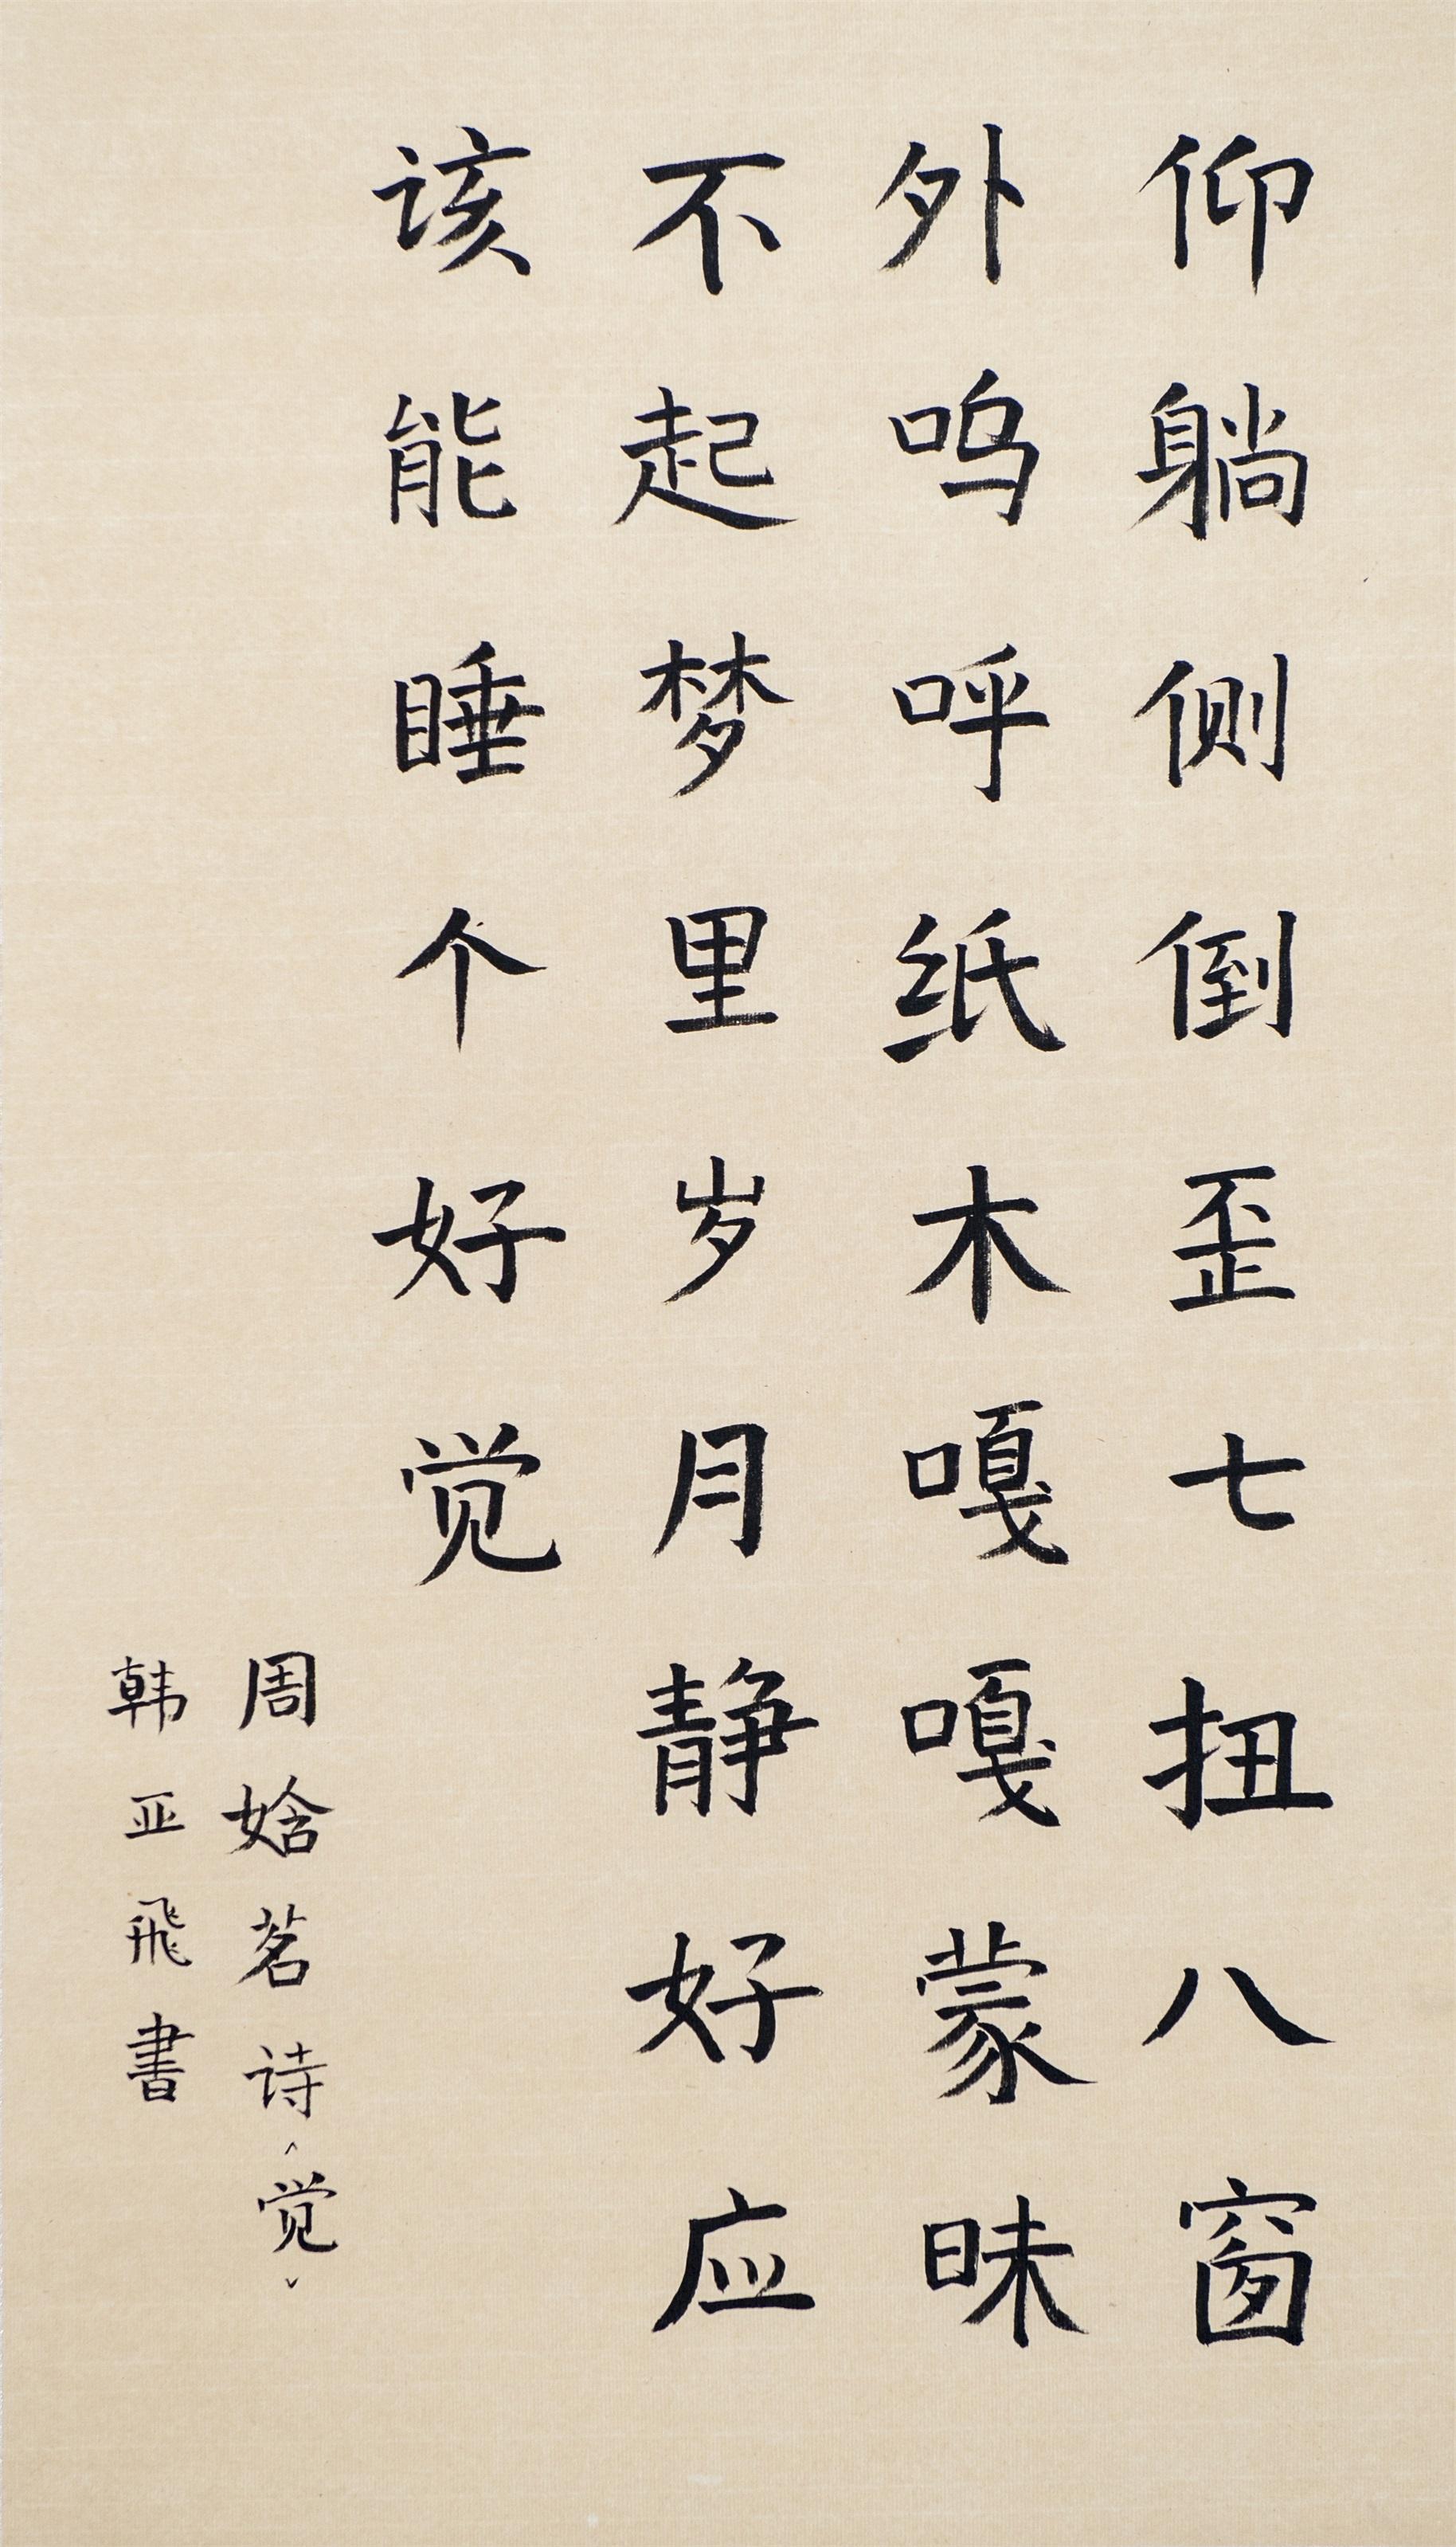 仰躺侧倒歪七扭八窗
外呜呼纸木嘎嘎蒙昧
不起梦里岁月静好应
该能睡个好觉
周娢茗诗〈觉〉
韩亚飛書